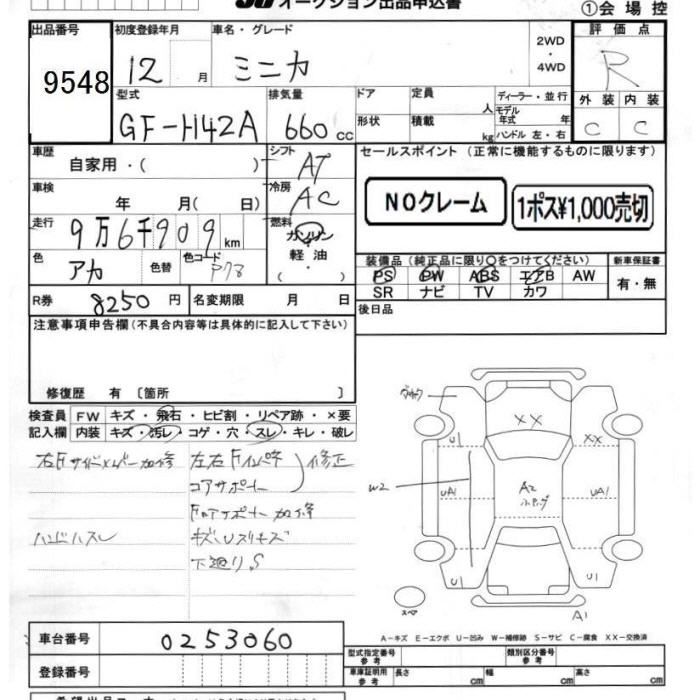 オークション出品申込書
①会場控
出品番号 初度登録年月 車名・グレード 評価点
9548 12月 ミニカ 2WD・4WD R
型式 排気量 ドア 定員 ディーラー・並行 外装 内装
GF-H42A 660cc 形状 積載 人 kg モデル年式 年 ハンドル 左・右 C C
車歴 自家用・( ) シフト AT セールスポイント (正常に機能するものに限ります)
車検 年 月( 日) 冷房 AC NOクレーム 1ポス¥1,000売切
走行 9万6千909km 燃料 ガソリン
軽油
( ・ )
色 アカ 色替 色コード P78
装備品 (純正品に限り○をつけてください) 新車保証書
PS PW ABS エアB AW 有・無
SR ナビ TV カワ
R券 8250円 名変期限 月 日 後日品
注意事項申告欄(不具合内容等は具体的に記入して下さい)
修復歴 有 〔箇所 〕
検査員 FW キズ・飛石・ヒビ割・リペア跡・×要
記入欄 内装 キズ・汚レ・コゲ・穴・スレ・キレ・破レ
右Fサイドメンバー加修 左右Fインパネ 修正
コアサポート
加修
ハンドルスレ
下廻りS
XX
U1 XX
W2 UA1 A2 UA1
U1 U1
スペア A1
A-キズ E-エクボ U-凹み W-補修跡 S-サビ C-腐食 XX-交換済
車台番号 0253060
型式指定番号 参考 類別区分番号 参考
登録番号 車庫証明用 参考 長さ cm 幅 cm 高さ cm